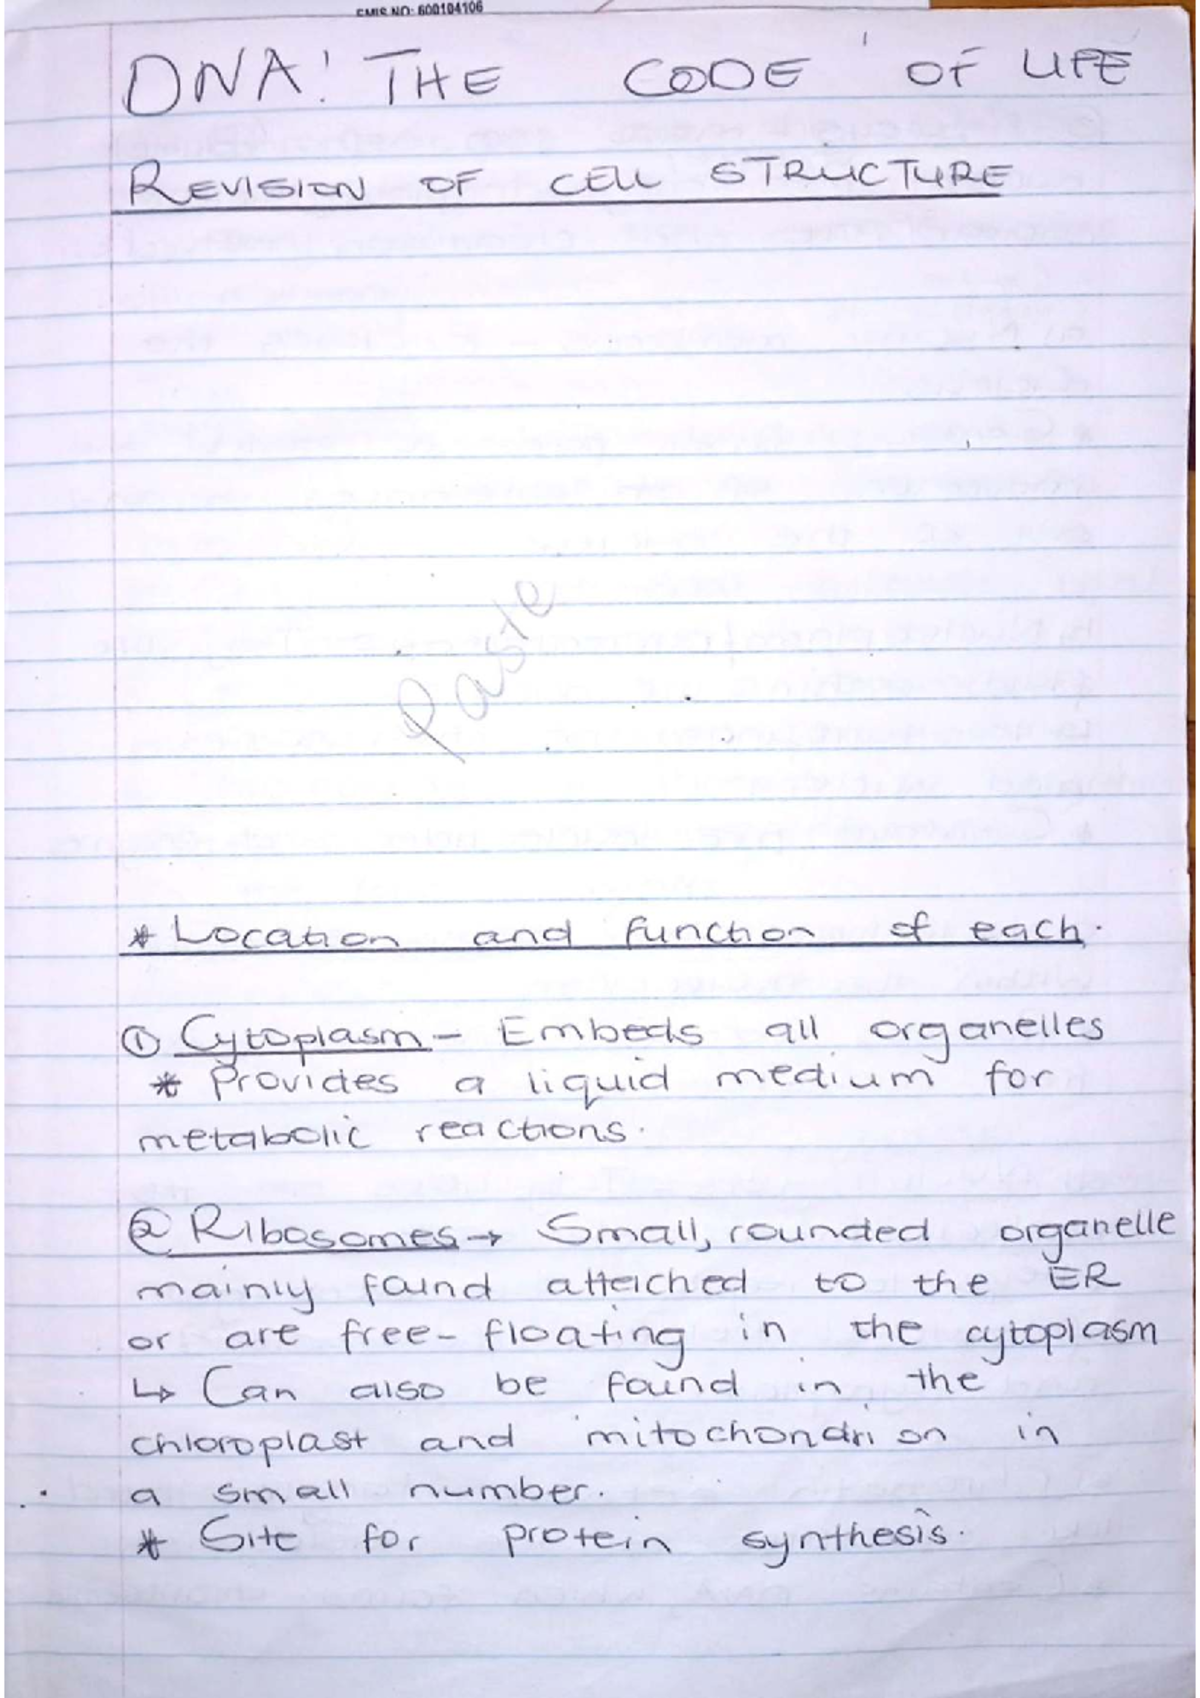 EMIS NO: 600104106
DNA: THE CODE OF LIFE
REVISION OF CELL STRUCTURE
Paste
* Location and function of each.
① Cytoplasm – Embeds all organelles
* Provides a liquid medium for
metabolic reactions.
② Ribosomes → Small, rounded organelle
mainly found attached to the ER
or are free-floating in the cytoplasm
↳ Can also be found in the
chloroplast and mitochondrion in
a small number.
* Site for protein synthesis.